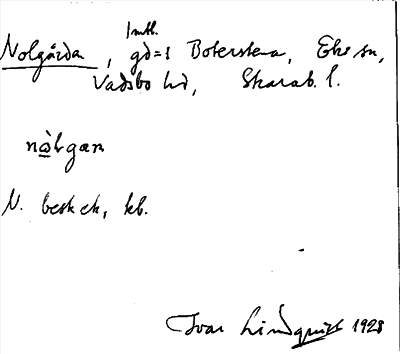 Inth.
Nolgården, gd = i Boterstena, Eks sn,
Vadsbo hd, Skarab. l.
nòlgan
N. besk ek, kb.
Ivar Lindquist 1928